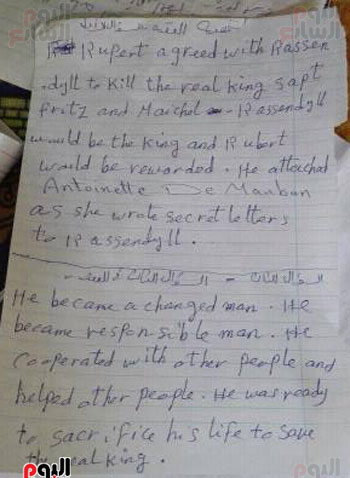 Rupert agreed with Rassen
dyll to kill the real king Sapt
Fritz and Maichel - Rassendyll
would be the king and Rubert
would be rewarded. He attachal
Antoinette De Mauban
as she wrote secret letters
to Rassendyll.
He became a changed man. He
became responsible man. He
cooperated with other people and
helped other people. He was ready
to sacrifice his life to save
the real king.
اليوم